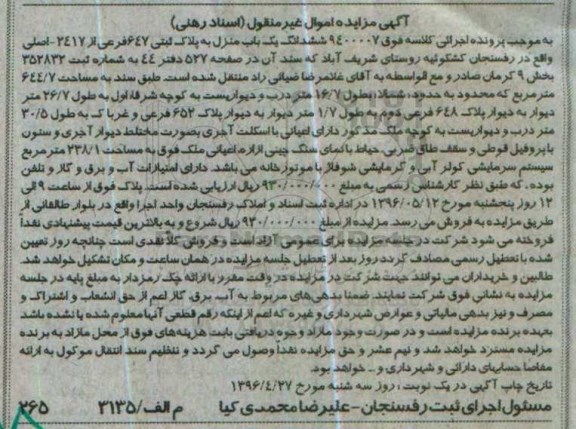 آگهی مزایده اموال غیر منقول (اسناد رهنی)
به موجب پرونده اجرائی کلاسه فوق ۹۴۰۰۰۰۷ ششدانگ یک باب منزل به پلاک ثبتی ۶۴۷فرعی از ۲۴۱۷-اصلی
واقع در رفسنجان کشکوئیه روستای شریف آباد که سند آن در صفحه ۵۲۷ دفتر ۴۴ به شماره ثبت ۳۵۲۸۳۲
بخش ۹ کرمان صادر و مع الواسطه به آقای غلامرضا ضیائی راد منتقل شده است. طبق سند به مساحت ۶۴۴/۷
متر مربع که محدود به حدود: شمالا: بطول ۱۶/۷ متر درب و دیواریست به کوچه شرقا: اول به طول ۲۶/۷ متر
دیوار به دیوار پلاک ۶۴۸ فرعی دوم به طول ۱/۷ متر دیوار به دیوار پلاک ۶۵۲ فرعی و غربا ک به طول ۳۰/۵
متر درب و دیواریست به کوچه ملک مذکور دارای اعیانی با اسکلت آجری بصورت مختلط دیوار آجری و ستون
با پروفیل قوطی و سقف طاق ضربی حیاط با نمای سنگ چینی ازاره اعیانی ملک فوق به مساحت ۲۳۸/۱ متر مربع
سیستم سرمایشی کولر آبی و گرمایشی شوفاژ با موتورخانه می باشد. دارای امتیازات آب و برق و گاز و تلفن
بوده، که طبق نظر کارشناس رسمی به مبلغ ۹۳۰/۰۰۰/۰۰۰ ریال ارزیابی شده است. پلاک فوق از ساعت ۹ الی
۱۲ روز پنجشنبه مورخ ۱۳۹۶/۰۵/۱۲ در اداره ثبت اسناد و املاک رفسنجان واحد اجرا واقع در بلوار طالقانی از
طریق مزایده به فروش می رسد. مزایده از مبلغ ۹۳۰/۰۰۰/۰۰۰ ریال شروع و به بالاترین قیمت پیشنهادی نقداً
فروخته می شود شرکت در جلسه مزایده برای عموم آزاد است و فروش کلاً نقدی است چنانچه روز تعیین
شده با تعطیل رسمی مصادف گردد روز بعد از تعطیل جلسه مزایده در همان ساعت و مکان تشکیل خواهد شد.
طالبین و خریداران می توانند جهت شرکت در مزایده در وقت مقرر با ارائه چک رمزدار به مبلغ پایه در جلسه
مزایده به نشانی فوق شرکت نمایند. ضمنا بدهی های مربوط به آب، برق، گاز اعم از حق انشعاب و اشتراک و
مصرف و نیز بدهی مالیاتی و عوارض شهرداری و غیره که اعم از اینکه رقم قطعی آنها معلوم شده یا نشده باشد
بعهده برنده مزایده است و در صورت وجود مازاد وجوه دریافتی بابت هزینه های فوق از محل مازاد به برنده
مزایده مسترد خواهد شد و نیم عشر و حق مزایده نقداً وصول می گردد و تنظیم سند انتقال موکول به ارائه
مفاصا حسابهای دارائی و شهرداری و ... خواهد بود.
تاریخ چاپ آگهی در یک نوبت: روز سه شنبه مورخ ۱۳۹۶/۴/۲۷
مسئول اجرای ثبت رفسنجان-علیرضا محمدی کیا م الف/۳۱۳۵ ۲۶۵